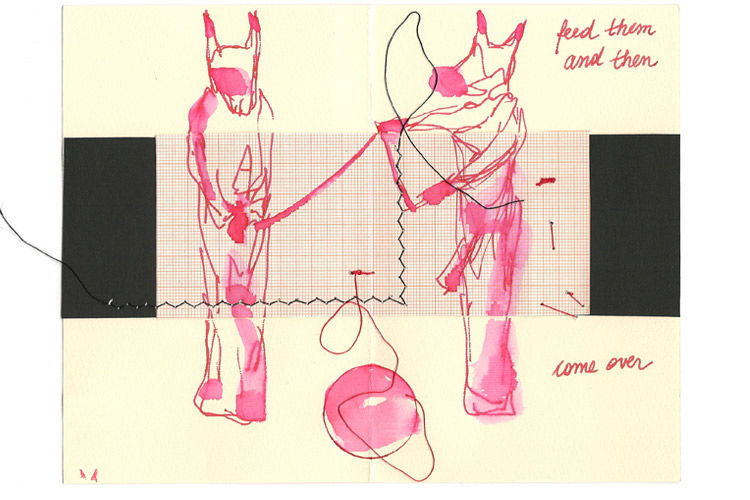 feed them
and then
come over